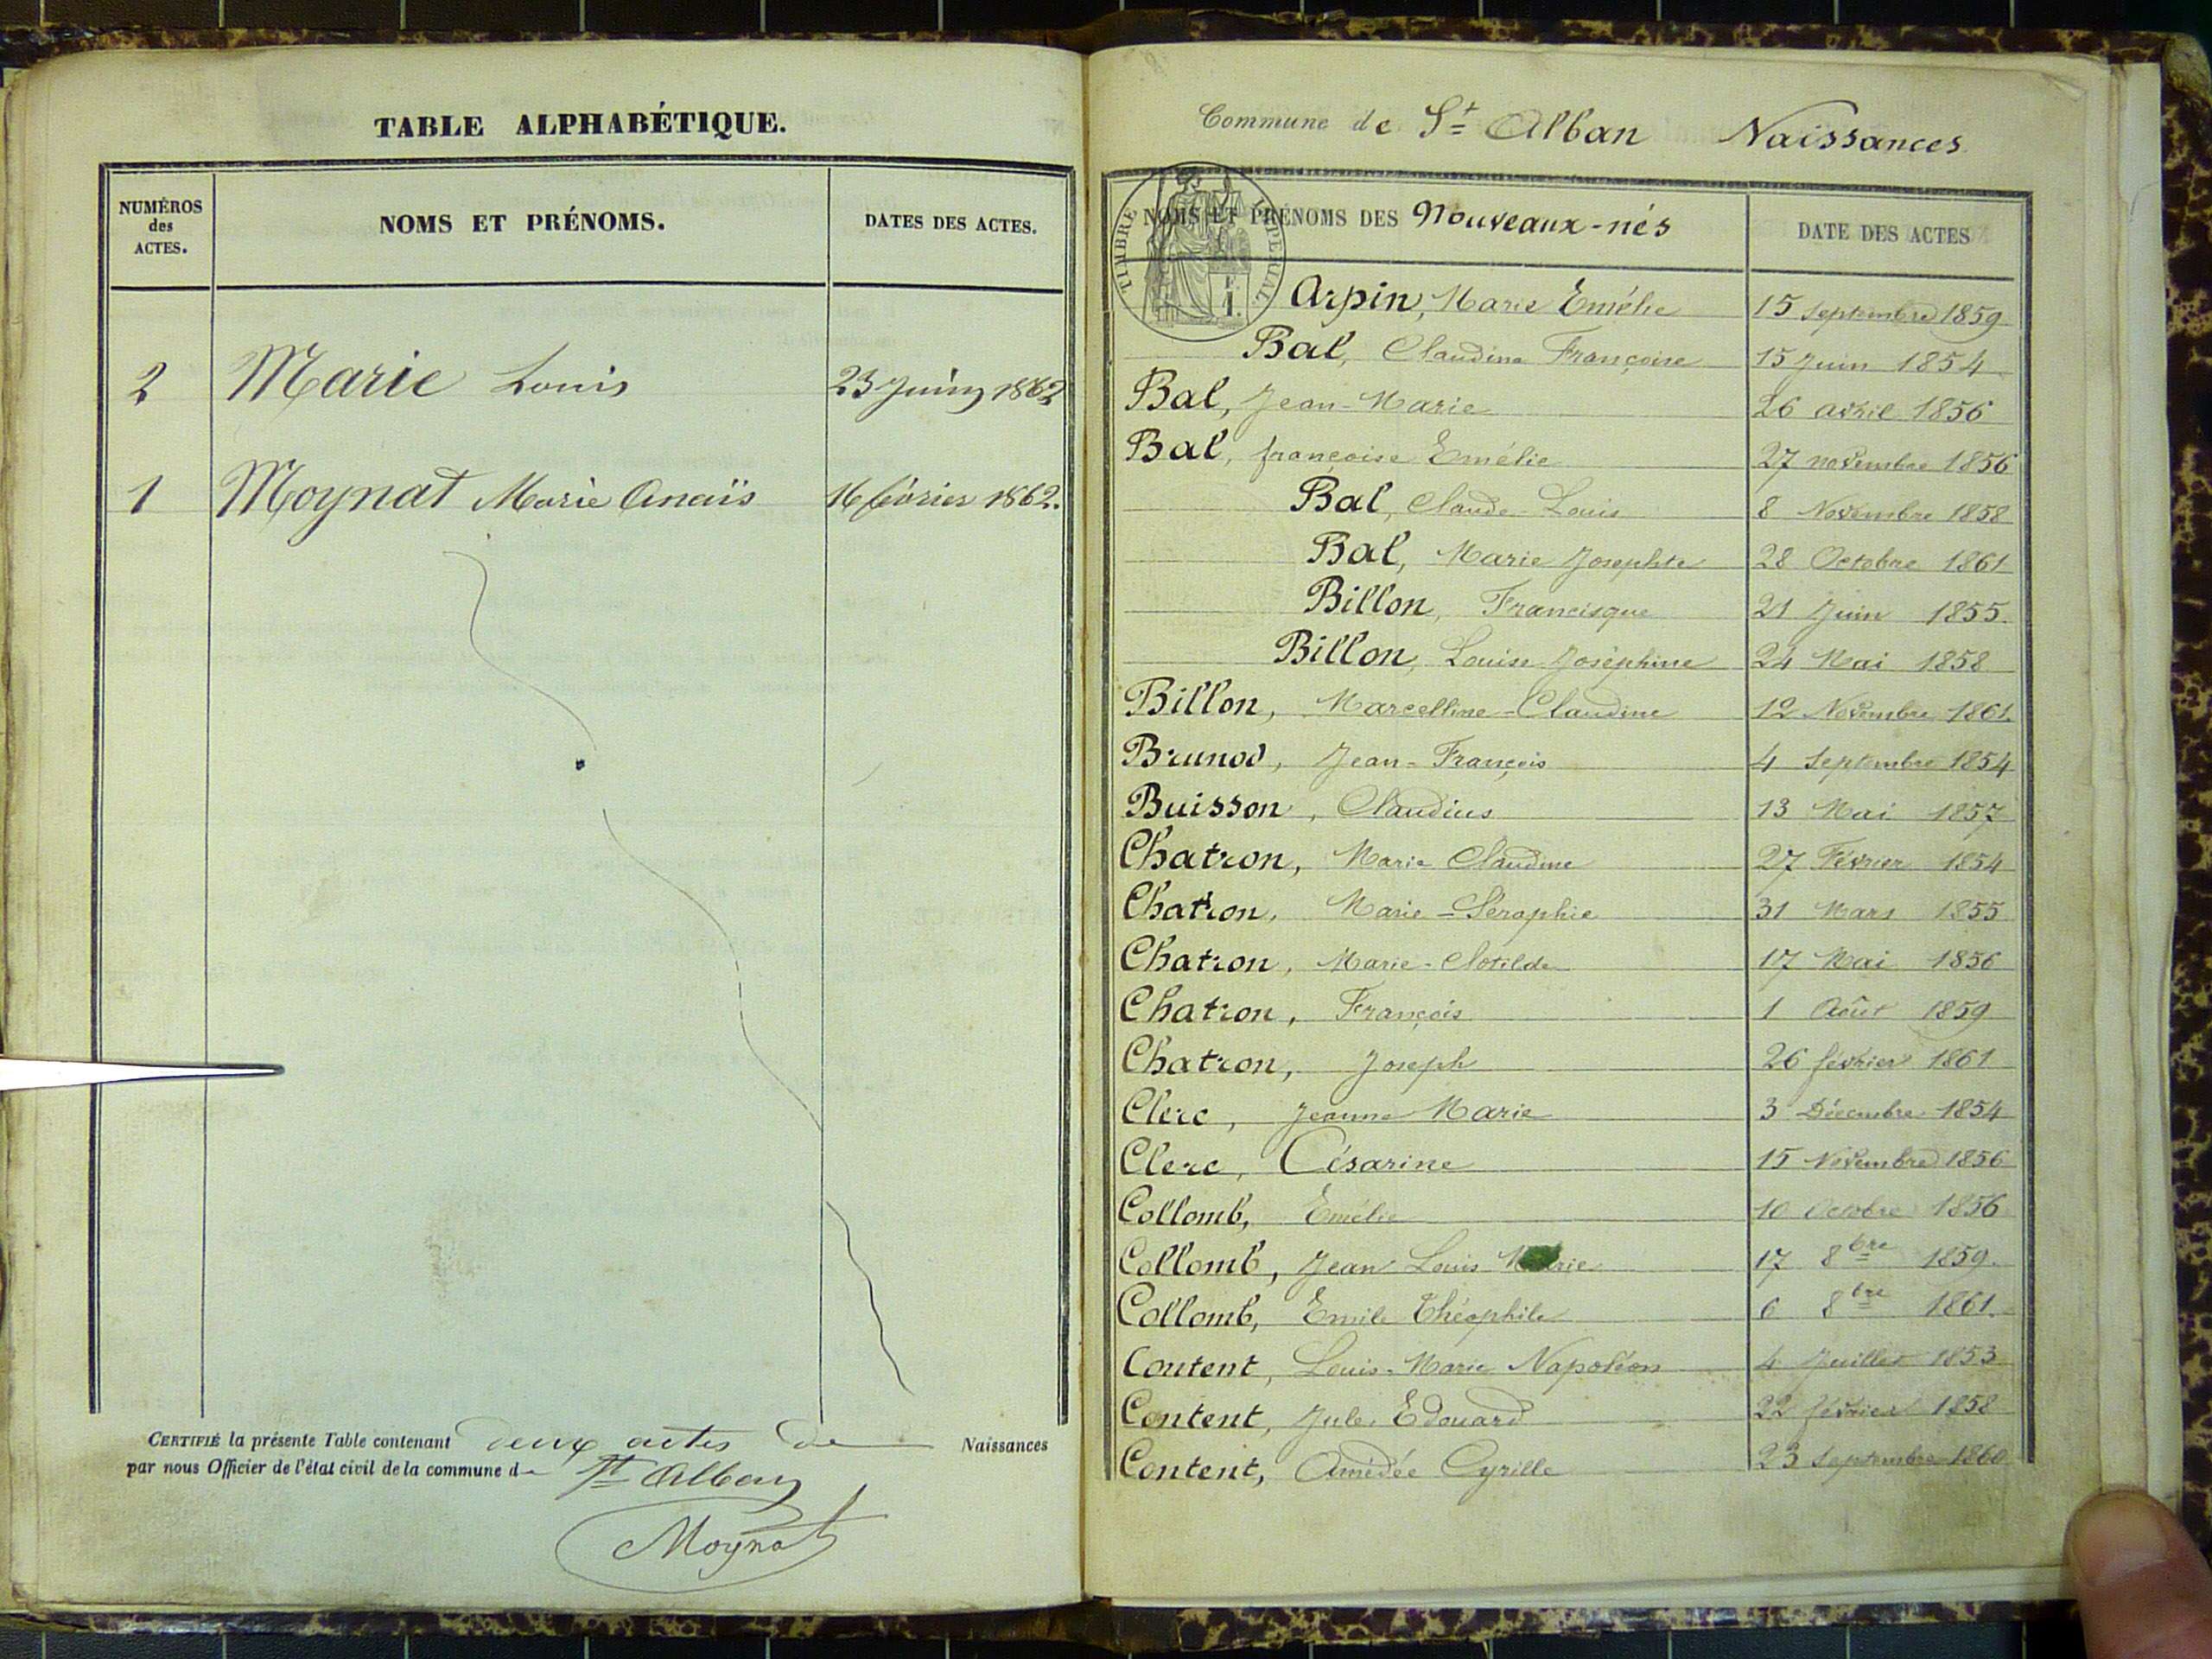 TABLE ALPHABÉTIQUE.
NUMÉROS des ACTES. NOMS ET PRÉNOMS. DATES DES ACTES.
2 Marie Louis 23 Juin 1862
1 Moynat Marie Anaïs 16 février 1862.
CERTIFIÉ la présente Table contenant deux actes de Naissances
par nous Officier de l'état civil de la commune de St Alban
Moynat
Commune de St Alban Naissances
TIMBRE
NOMS ET PRÉNOMS DES Nouveaux-nés DATE DES ACTES
Arpin, Marie Emélie 15 septembre 1859
Bal, Claudine Françoise 15 Juin 1854
Bal, Jean-Marie 26 avril 1856
Bal, françoise Emélie 27 novembre 1856
Bal, Claude Louis 8 Novembre 1858
Bal, Marie Josephte 28 Octobre 1861
Billon, Francisque 21 Juin 1855.
Billon, Louise Joséphine 24 Mai 1858
Billon, Marcelline-Claudine 12 Novembre 1861.
Brunod, Jean-François 4 Septembre 1854
Buisson, Claudius 13 Mai 1857
Chatron, Marie Claudine 27 Février 1854
Chatron, Marie-Séraphie 31 Mars 1855
Chatron, Marie-Clotilde 17 Mai 1856
Chatron, François 1 Août 1859
Chatron, Joseph 26 février 1861
Clerc, Jeanne Marie 3 Décembre 1854
Clerc, Césarine 15 Novembre 1856
Collomb, Emélie 10 Octobre 1856
Collomb, Jean Louis Marie 17 8bre 1859.
Collomb, Emile Théophile 6 8bre 1861.
Content, Louis-Marie Napoléon 4 Juillet 1853
Content, Jules Edouard 22 février 1858
Content, Amédée Cyrille 23 septembre 1860